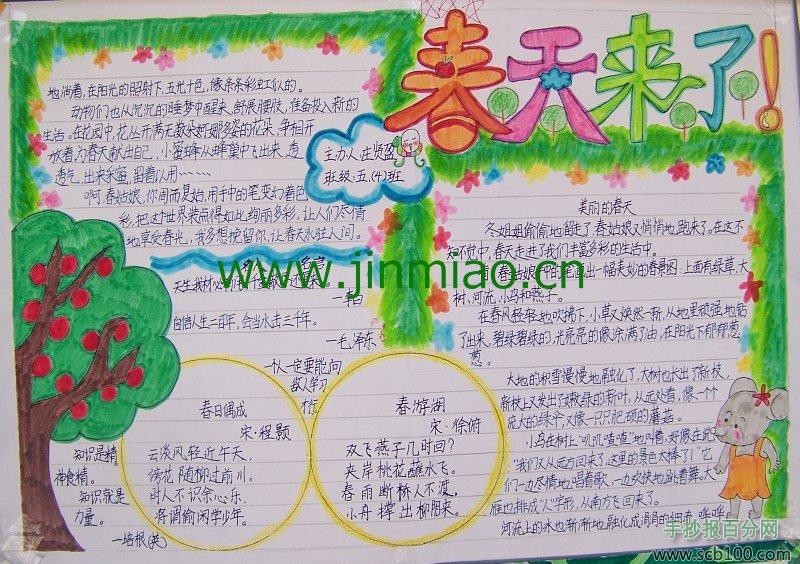 春天来了!
地淌着,在阳光的照射下,五光十色,像条条彩虹似的。
动物们也从沉沉的睡梦中醒来,舒展腰肢,准备投入新的
生活。在花园中,花丛开满无数米好婀多姿的花朵,争相开
放着为春天献出自己,小蜜蜂从蜂巢中飞出来,透
透气,出来采蜜,唱着以用……
啊,春姑娘,你周而复始,用手中的笔变幻着色
彩,把这个世界装点得如此绚丽多彩,让人们尽情
地享受春光,我多想挽留你,让春天永驻人间。
主办人:庄贤盈
班级:五.(4)班
天生我材必
—李白
自信人生二百年,会当水击三千年。
—毛泽东
一个人一定要能向
敌人学习
春日偶成
宋·程颢
云淡风轻近午天,
傍花随柳过前川。
时人不识余心乐,
将谓偷闲学少年。
春游湖
宋 徐俯
双飞燕子几时回?
夹岸桃花蘸水飞。
春雨断桥人不渡,
小舟撑出柳阴来。
知识是精
神食精。
知识就是
力量。
—培根(英)
美丽的春天
冬姐姐偷偷地留走了,春姑娘又悄悄地跑来了。在这不
知不觉中,春天走进了我们丰富多彩的生活中。
出一幅美妙的春景图:上面有绿草、大
树、河流、小鸟和燕子。
在春风轻轻地吹拂下,小草又焕然一新,从地里顽强地钻
了出来,碧绿碧绿的,光亮亮的像涂满了油,在阳光下郁郁葱
葱。
大地的积雪慢慢地融化了,大树也长出了新枝,
新枝上又发出了嫩绿的新叶,从远处看,像一个
庞大的绿伞又像一只只肥硕的蘑菇。
小鸟在树上“叽叽喳喳”地叫着,好像在说
:“我们又从远方回来了,这里的景色太棒了!”它
们一边尽情地唱着歌,一边欢快地跳着舞。大
雁也排成“人”字形,从南方飞回来了。
河流上的水也渐渐地融化成涓涓的细流,哗哗
www.jinmiao.cn
手抄报百分网
www.scb100.com